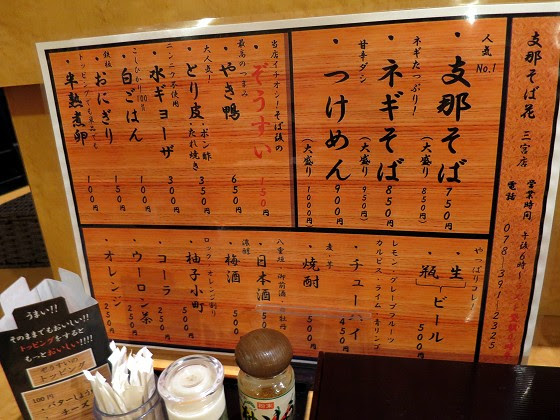 支那そば花 三宮店
営業時間 午後6時～
電話 078-391-2325
人気No.1
・支那そば 750円
(大盛り 850円)
ネギたっぷり！
・ネギそば 850円
(大盛り 950円)
甘辛ダシ
・つけめん 900円
(大盛り 1000円)
当店イチオシ！そば後の
・ぞうすい 150円
最高のつまみ
・やき鴨 650円
大人気！
・とり皮 ・ポン酢 ・たれ焼き 350円
ニンニク不使用
・水ギョーザ 300円
こしひかり100%
・白ごはん 150円
・おにぎり 100円
・半熟煮卵 100円
やっぱりコレ！
・生 ・瓶 ビール 500円
レモン・グレープフルーツ
カルピス・ライム
・チューハイ 450円
麦・芋
・焼酎
・日本酒
・梅酒
ロック
・柚子小町
・コーラ 250円
・ウーロン茶 250円
・オレンジ 250円
うまい!!
そのままでもおいしい!!
トッピングをすると
もっとおいしい!!!!
トッピング
100円
・バター